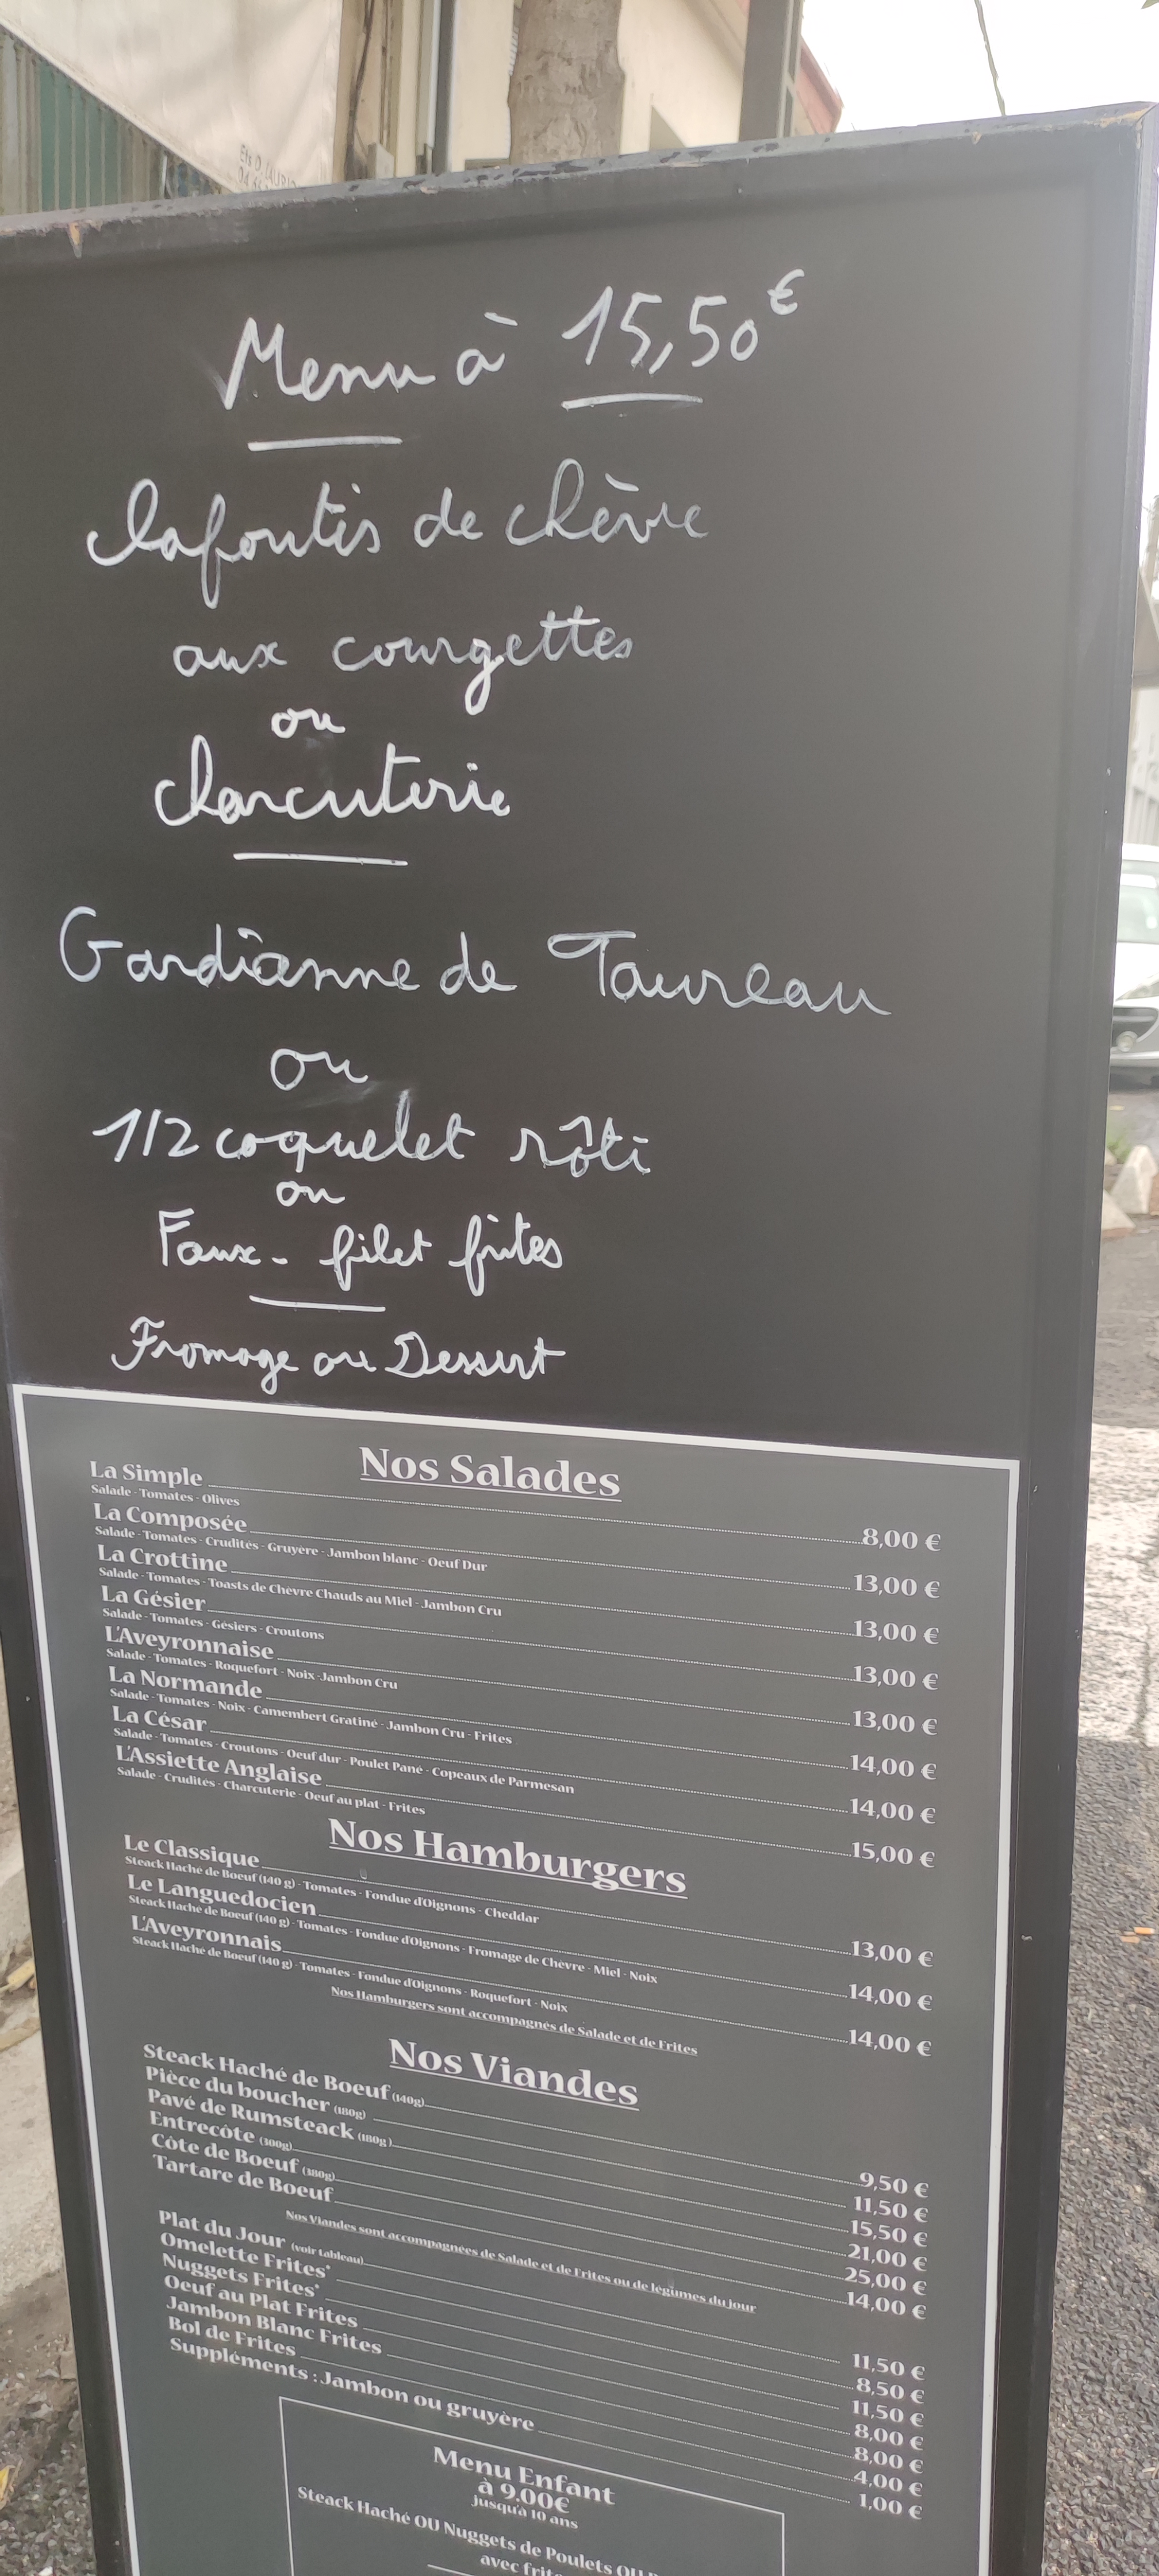 Menu à 15,50€
Clafoutis de chèvre
aux courgettes
ou
charcuterie
Gardianne de Taureau
ou
1/2 coquelet rôti
ou
Faux-filet frites
Fromage ou Dessert
Nos Salades
La Simple 8,00 €
Salade - Tomates - Olives
La Composée 13,00 €
Salade - Tomates - Crudités - Gruyère - Jambon blanc - Oeuf Dur
La Crottine 13,00 €
Salade - Tomates - Toasts de Chèvre Chauds au Miel - Jambon Cru
La Gésier 13,00 €
Salade - Tomates - Gésiers - Croutons
L'Aveyronnaise 13,00 €
Salade - Tomates - Roquefort - Noix - Jambon Cru
La Normande 14,00 €
Salade - Tomates - Noix - Camembert Gratiné - Jambon Cru - Frites
La César 14,00 €
Salade - Tomates - Croutons - Oeuf dur - Poulet Pané - Copeaux de Parmesan
L'Assiette Anglaise 15,00 €
Salade - Crudités - Charcuterie - Oeuf au plat - Frites
Nos Hamburgers
Le Classique 13,00 €
Steack Haché de Boeuf (140 g) - Tomates - Fondue d'Oignons - Cheddar
Le Languedocien 14,00 €
Steack Haché de Boeuf (140 g) - Tomates - Fondue d'Oignons - Fromage de Chèvre - Miel - Noix
L'Aveyronnais 14,00 €
Steack Haché de Boeuf (140 g) - Tomates - Fondue d'Oignons - Roquefort - Noix
Nos Hamburgers sont accompagnés de Salade et de Frites
Nos Viandes
Steack Haché de Boeuf (140g) 9,50 €
Pièce du boucher (180g) 11,50 €
Pavé de Rumsteack (180g) 15,50 €
Entrecôte (300g) 21,00 €
Côte de Boeuf (380g) 25,00 €
Tartare de Boeuf 14,00 €
Nos Viandes sont accompagnées de Salade et de Frites ou de légumes du jour
Plat du Jour (voir tableau) 11,50 €
Omelette Frites* 8,50 €
Nuggets Frites* 11,50 €
Oeuf au Plat Frites 8,00 €
Jambon Blanc Frites 8,00 €
Bol de Frites 4,00 €
Suppléments : Jambon ou gruyère 1,00 €
Menu Enfant
à 9.00€
Jusqu'à 10 ans
Steack Haché OU Nuggets de Poulets OU
avec